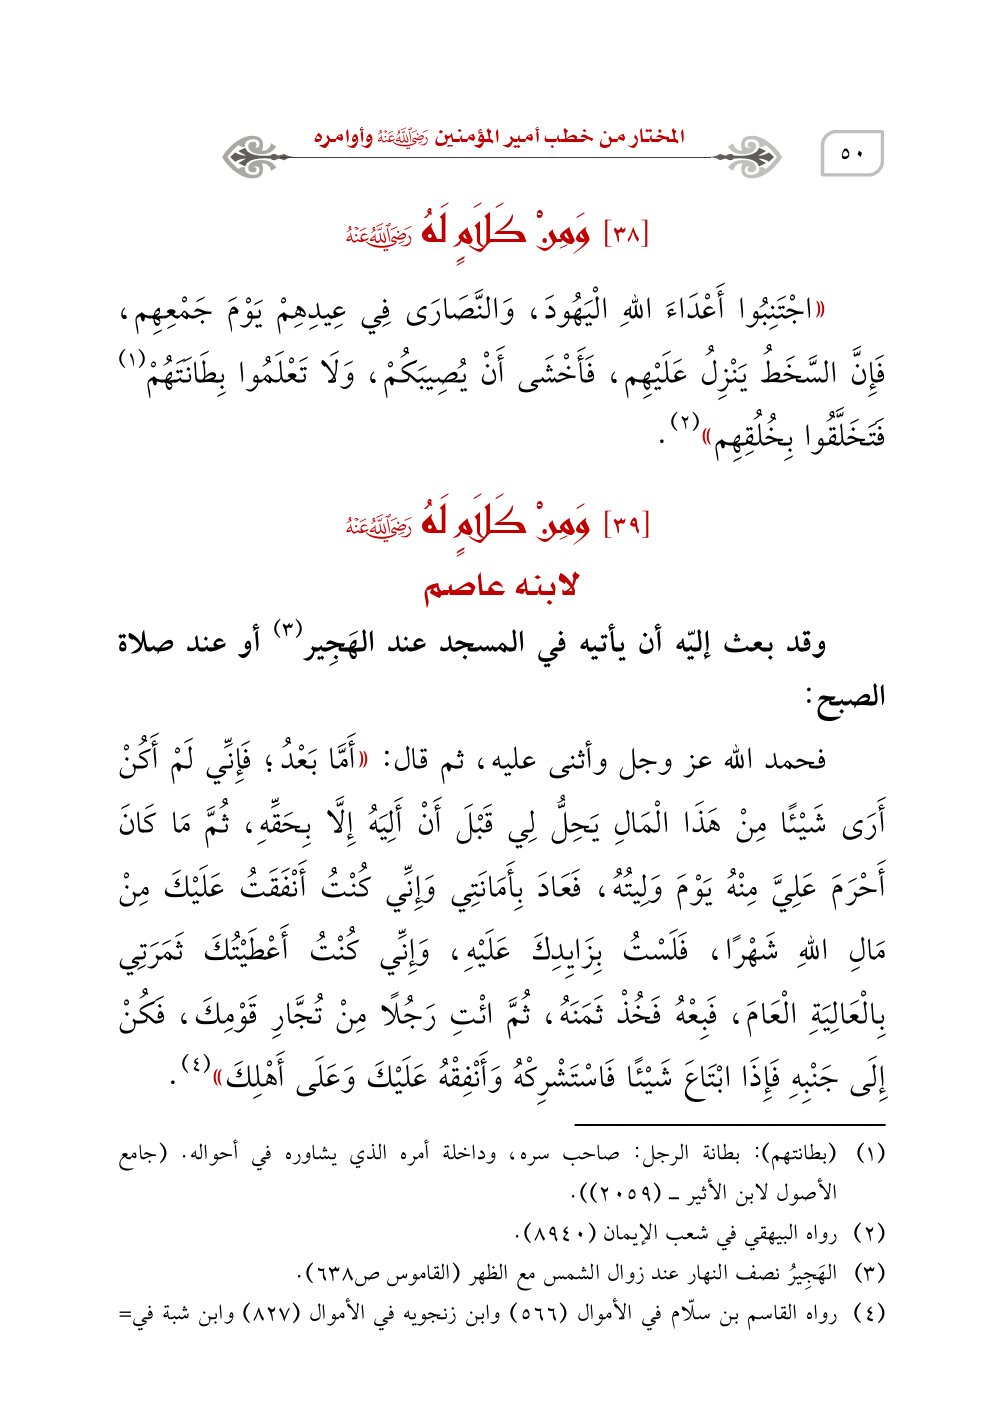 المختار من خطب أمير المؤمنين رَضِيَ اللَّهُ عَنْهُ وأوامره
٥٠
[٣٨] وَمِنْ كَلَامٍ لَهُ رَضِيَ اللَّهُ عَنْهُ
«اجْتَنِبُوا أَعْدَاءَ اللهِ الْيَهُودَ، وَالنَّصَارَى فِي عِيدِهِمْ يَوْمَ جَمْعِهِم،
فَإِنَّ السَّخَطُ يَنْزِلُ عَلَيْهِم، فَأَخْشَى أَنْ يُصِيبَكُمْ، وَلَا تَعْلَمُوا بِطَانَتَهُمْ(١)
فَتَخَلَّقُوا بِخُلُقِهِم»(٢).
[٣٩] وَمِنْ كَلَامٍ لَهُ رَضِيَ اللَّهُ عَنْهُ
لابنه عاصم
وقد بعث إليّه أن يأتيه في المسجد عند الهَجِير(٣) أو عند صلاة
الصبح:
فحمد الله عز وجل وأثنى عليه، ثم قال: «أَمَّا بَعْدُ؛ فَإِنِّي لَمْ أَكُنْ
أَرَى شَيْئًا مِنْ هَذَا الْمَالِ يَحِلُّ لِي قَبْلَ أَنْ أَلِيَهُ إِلَّا بِحَقِّهِ، ثُمَّ مَا كَانَ
أَحْرَمَ عَلِيَّ مِنْهُ يَوْمَ وَلِيتُهُ، فَعَادَ بِأَمَانَتِي وَإِنِّي كُنْتُ أَنْفَقَتُ عَلَيْكَ مِنْ
مَالِ اللهِ شَهْرًا، فَلَسْتُ بِزَايِدِكَ عَلَيْهِ، وَإِنِّي كُنْتُ أَعْطَيْتُكَ ثَمَرَتِي
بِالْعَالِيَةِ الْعَامَ، فَبِعْهُ فَخُذْ ثَمَنَهُ، ثُمَّ ائْتِ رَجُلًا مِنْ تُجَّارِ قَوْمِكَ، فَكُنْ
إِلَى جَنْبِهِ فَإِذَا ابْتَاعَ شَيْئًا فَاسْتَشْرِكْهُ وَأَنْفِقْهُ عَلَيْكَ وَعَلَى أَهْلِكَ»(٤).
(١) (بطانتهم): بطانة الرجل: صاحب سره، وداخلة أمره الذي يشاوره في أحواله. (جامع
الأصول لابن الأثير ـ (٢٠٥٩)).
(٢) رواه البيهقي في شعب الإيمان (٨٩٤٠).
(٣) الهَجِيرُ نصف النهار عند زوال الشمس مع الظهر (القاموس ص٦٣٨).
(٤) رواه القاسم بن سلّام في الأموال (٥٦٦) وابن زنجويه في الأموال (٨٢٧) وابن شبة في=